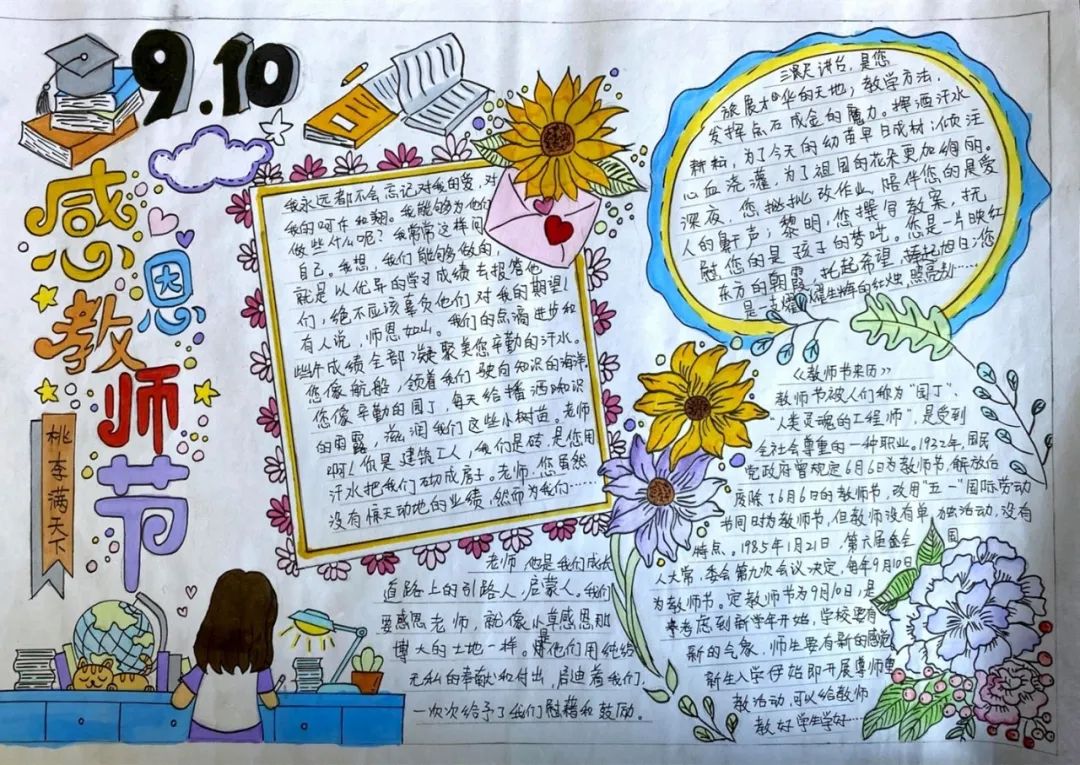 9.10
感恩教师节
桃李满天下
我永远都不会忘记对我的爱,对
我的呵斥和翔。我能够为他们
做些什么呢?我常常这样问
自己。我想,我们能够做的,
就是以优异的学习成绩去报答他
们,绝不应该辜负他们对我的期望!
有人说,师恩如山。我们的点滴进步和
些许成绩全部凝聚美您辛勤的汗水。
您像航船,领着我们驶向知识的海洋.
您像辛勤的园丁,每天给播洒知识
的雨露,滋润我们这些小树苗。老师
啊!您是建筑工人,我们是砖,是您用
汗水把我们砌成房子。老师,您虽然
没有惊天动地的业绩,然而为我们……
三尺讲台,是您
施展才华的天地;教学方法,
发挥点石成金的魔力。挥洒汗水
耕耘,为了今天的幼苗早日成材;倾注
心血浇灌,为了祖国的花朵更加绚丽。
深夜,您挑批改作业,陪伴您的是爱
人的鼾声;黎明,您撰写教案,抚
慰您的是孩子的梦呓。您是一片映红
东方的朝霞,托起希望,捧起旭日;您
是一支耀生辉的红烛,照亮
《教师书来历》
教师节被人们称为“园丁”、
“人类灵魂的工程师”,是受到
全社会尊重的一种职业。1932年,国民
党政府曾规定6月6日为教师节,解放后
废除了6月6日的教师节,改用“五一”国际劳动
节同时为教师节,但教师没有单独活动,没有
特点。1985年1月21日,第六届全国
人大常,委会第九次会议决定,每年9月10日
为教师节。定教师节为9月10日,是
考虑到新学年开始,学校要有
新的气象,师生要有新的感觉
新生入学伊始即开展尊师重
教活动,可以给教师
教好学生学好……
老师,他是我们成长
道路上的引路人,启蒙人。我们
要感恩老师,就像小草感恩那
博大的土地一样。是他们用纯给
无私的奉献和付出,启迪着我们,
一次次给予了我们慰藉和鼓励。